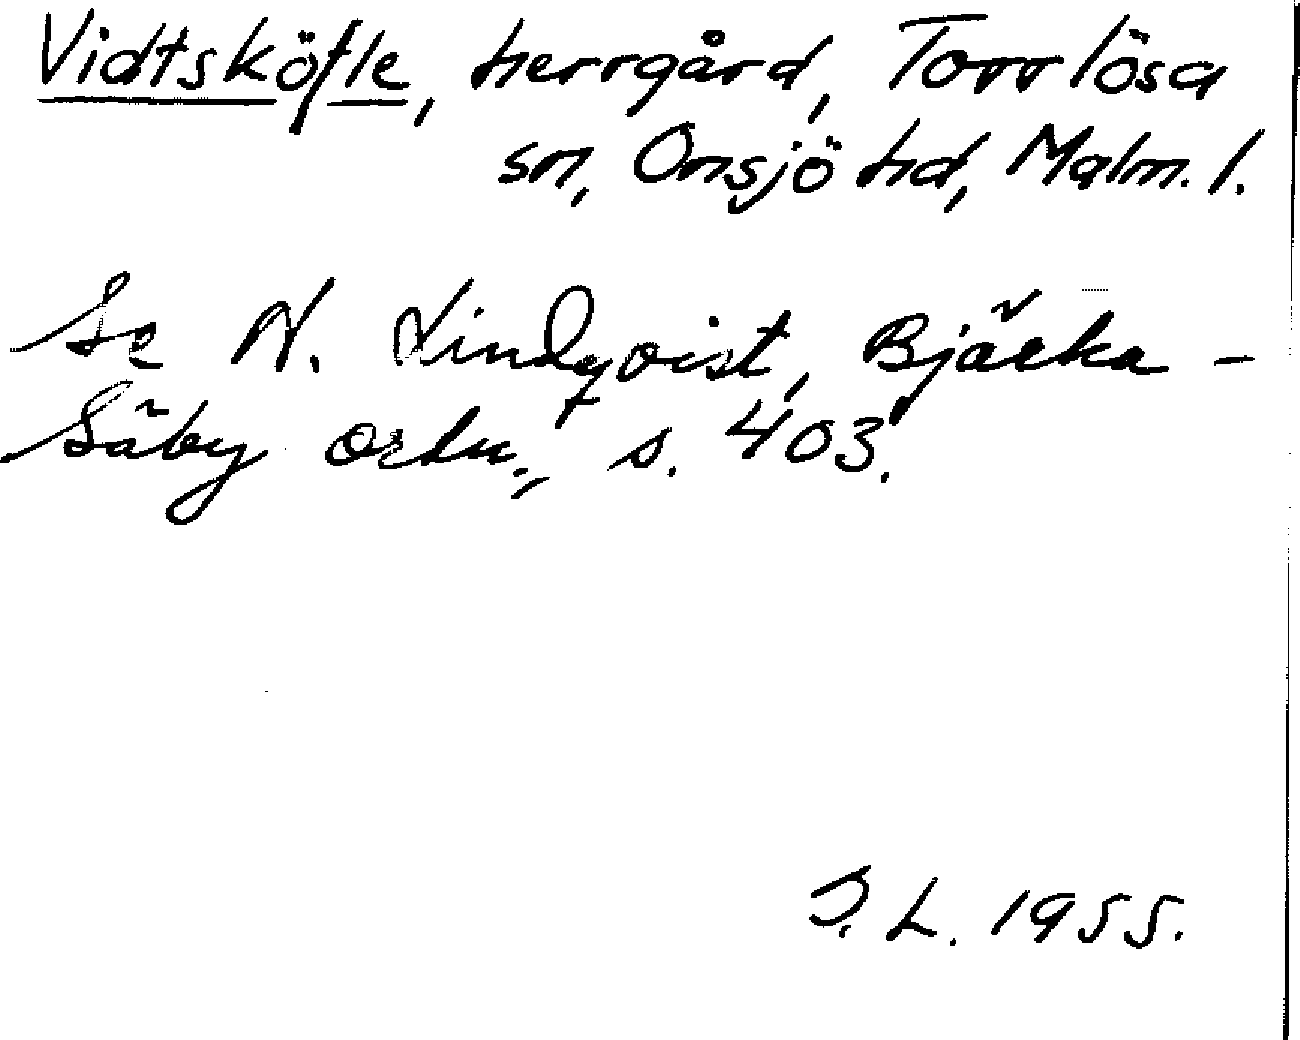 Vidtsköfle, herrgård, Torrlösa
sn, Onsjö hd, Malm. l.
Se N. Lindqvist, Bjärka-
Säby ortn., s. 403.
L. 1955.